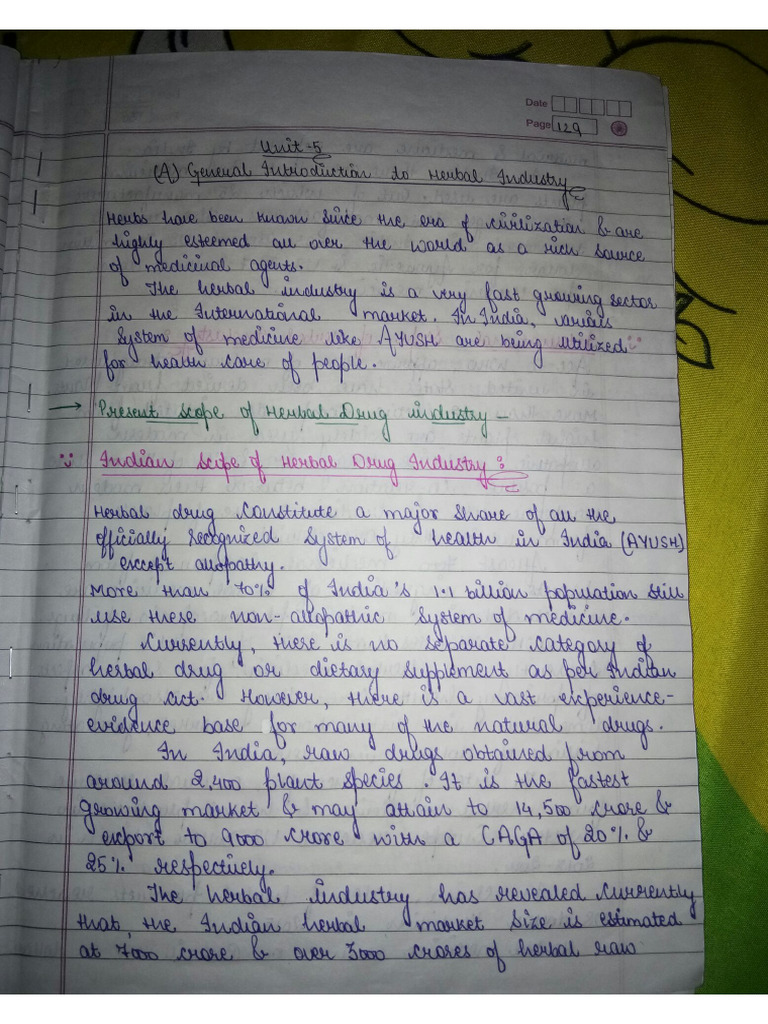 Date
Page 129
Unit-5
(A) General Introduction to Herbal Industry
Herbs have been known since the era of civilization & are
highly esteemed all over the world as a rich source
of medicinal agents.
The herbal industry is a very fast growing sector
in the International market. In India, various
system of medicine like AYUSH are being utilized
for health care of people.
→ Present scope of Herbal Drug industry –
Indian scope of Herbal Drug Industry :
Herbal drug constitute a major share of all the
officially recognized system of health in India (AYUSH)
except allopathy.
More than 70% of India's 1.1 billion population still
use these non-allopathic system of medicine.
Currently, there is no separate category of
herbal drug or dietary supplement as per Indian
drug act. However, there is a vast experience-
evidence base for many of the natural drugs.
In India, raw drugs obtained from
around 2,400 plant species. It is the fastest
growing market & may attain to 14,500 crore &
export to 9000 crore with a CAGA of 20% &
25% respectively.
The herbal industry has revealed currently
that, the Indian herbal market size is estimated
at 7000 crore & over 3000 crores of herbal raw